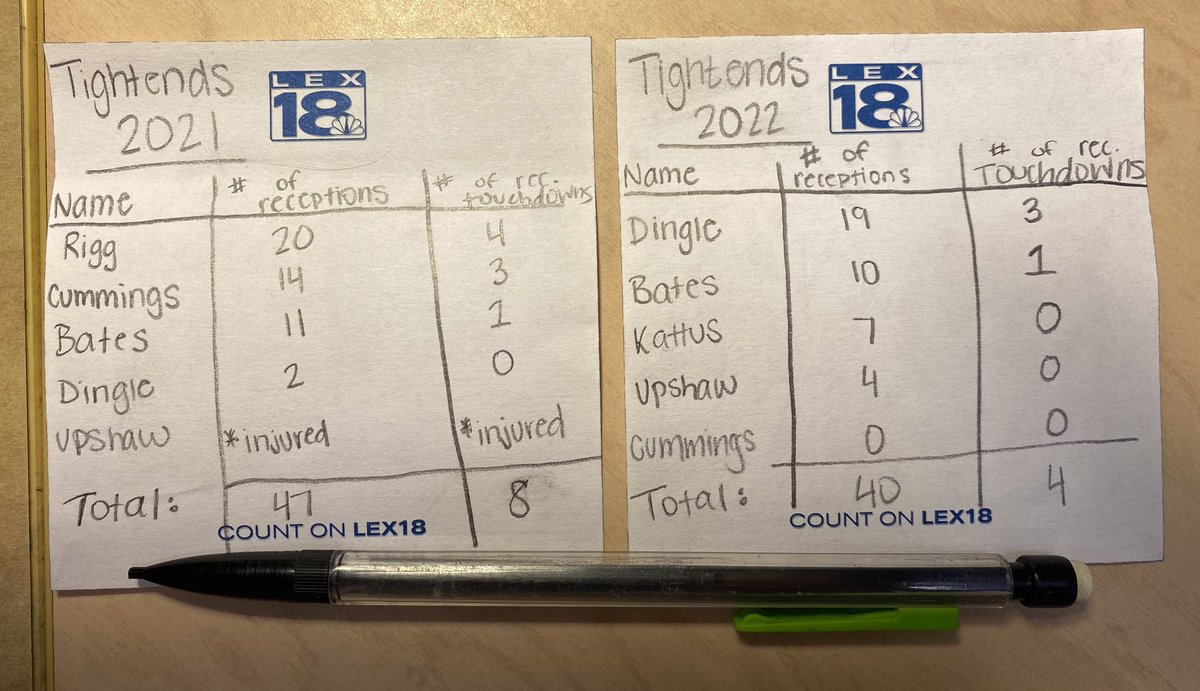 Tightends
2021
LEX
18
Name # of receptions # of rec. touchdowns
Rigg 20 4
Cummings 14 3
Bates 11 1
Dingle 2 0
Upshaw *injured *injured
Total: 47 8
COUNT ON LEX18
Tightends
2022
LEX
18
Name # of receptions # of rec. Touchdowns
Dingle 19 3
Bates 10 1
Kattus 7 0
Upshaw 4 0
Cummings 0 0
Total: 40 4
COUNT ON LEX18